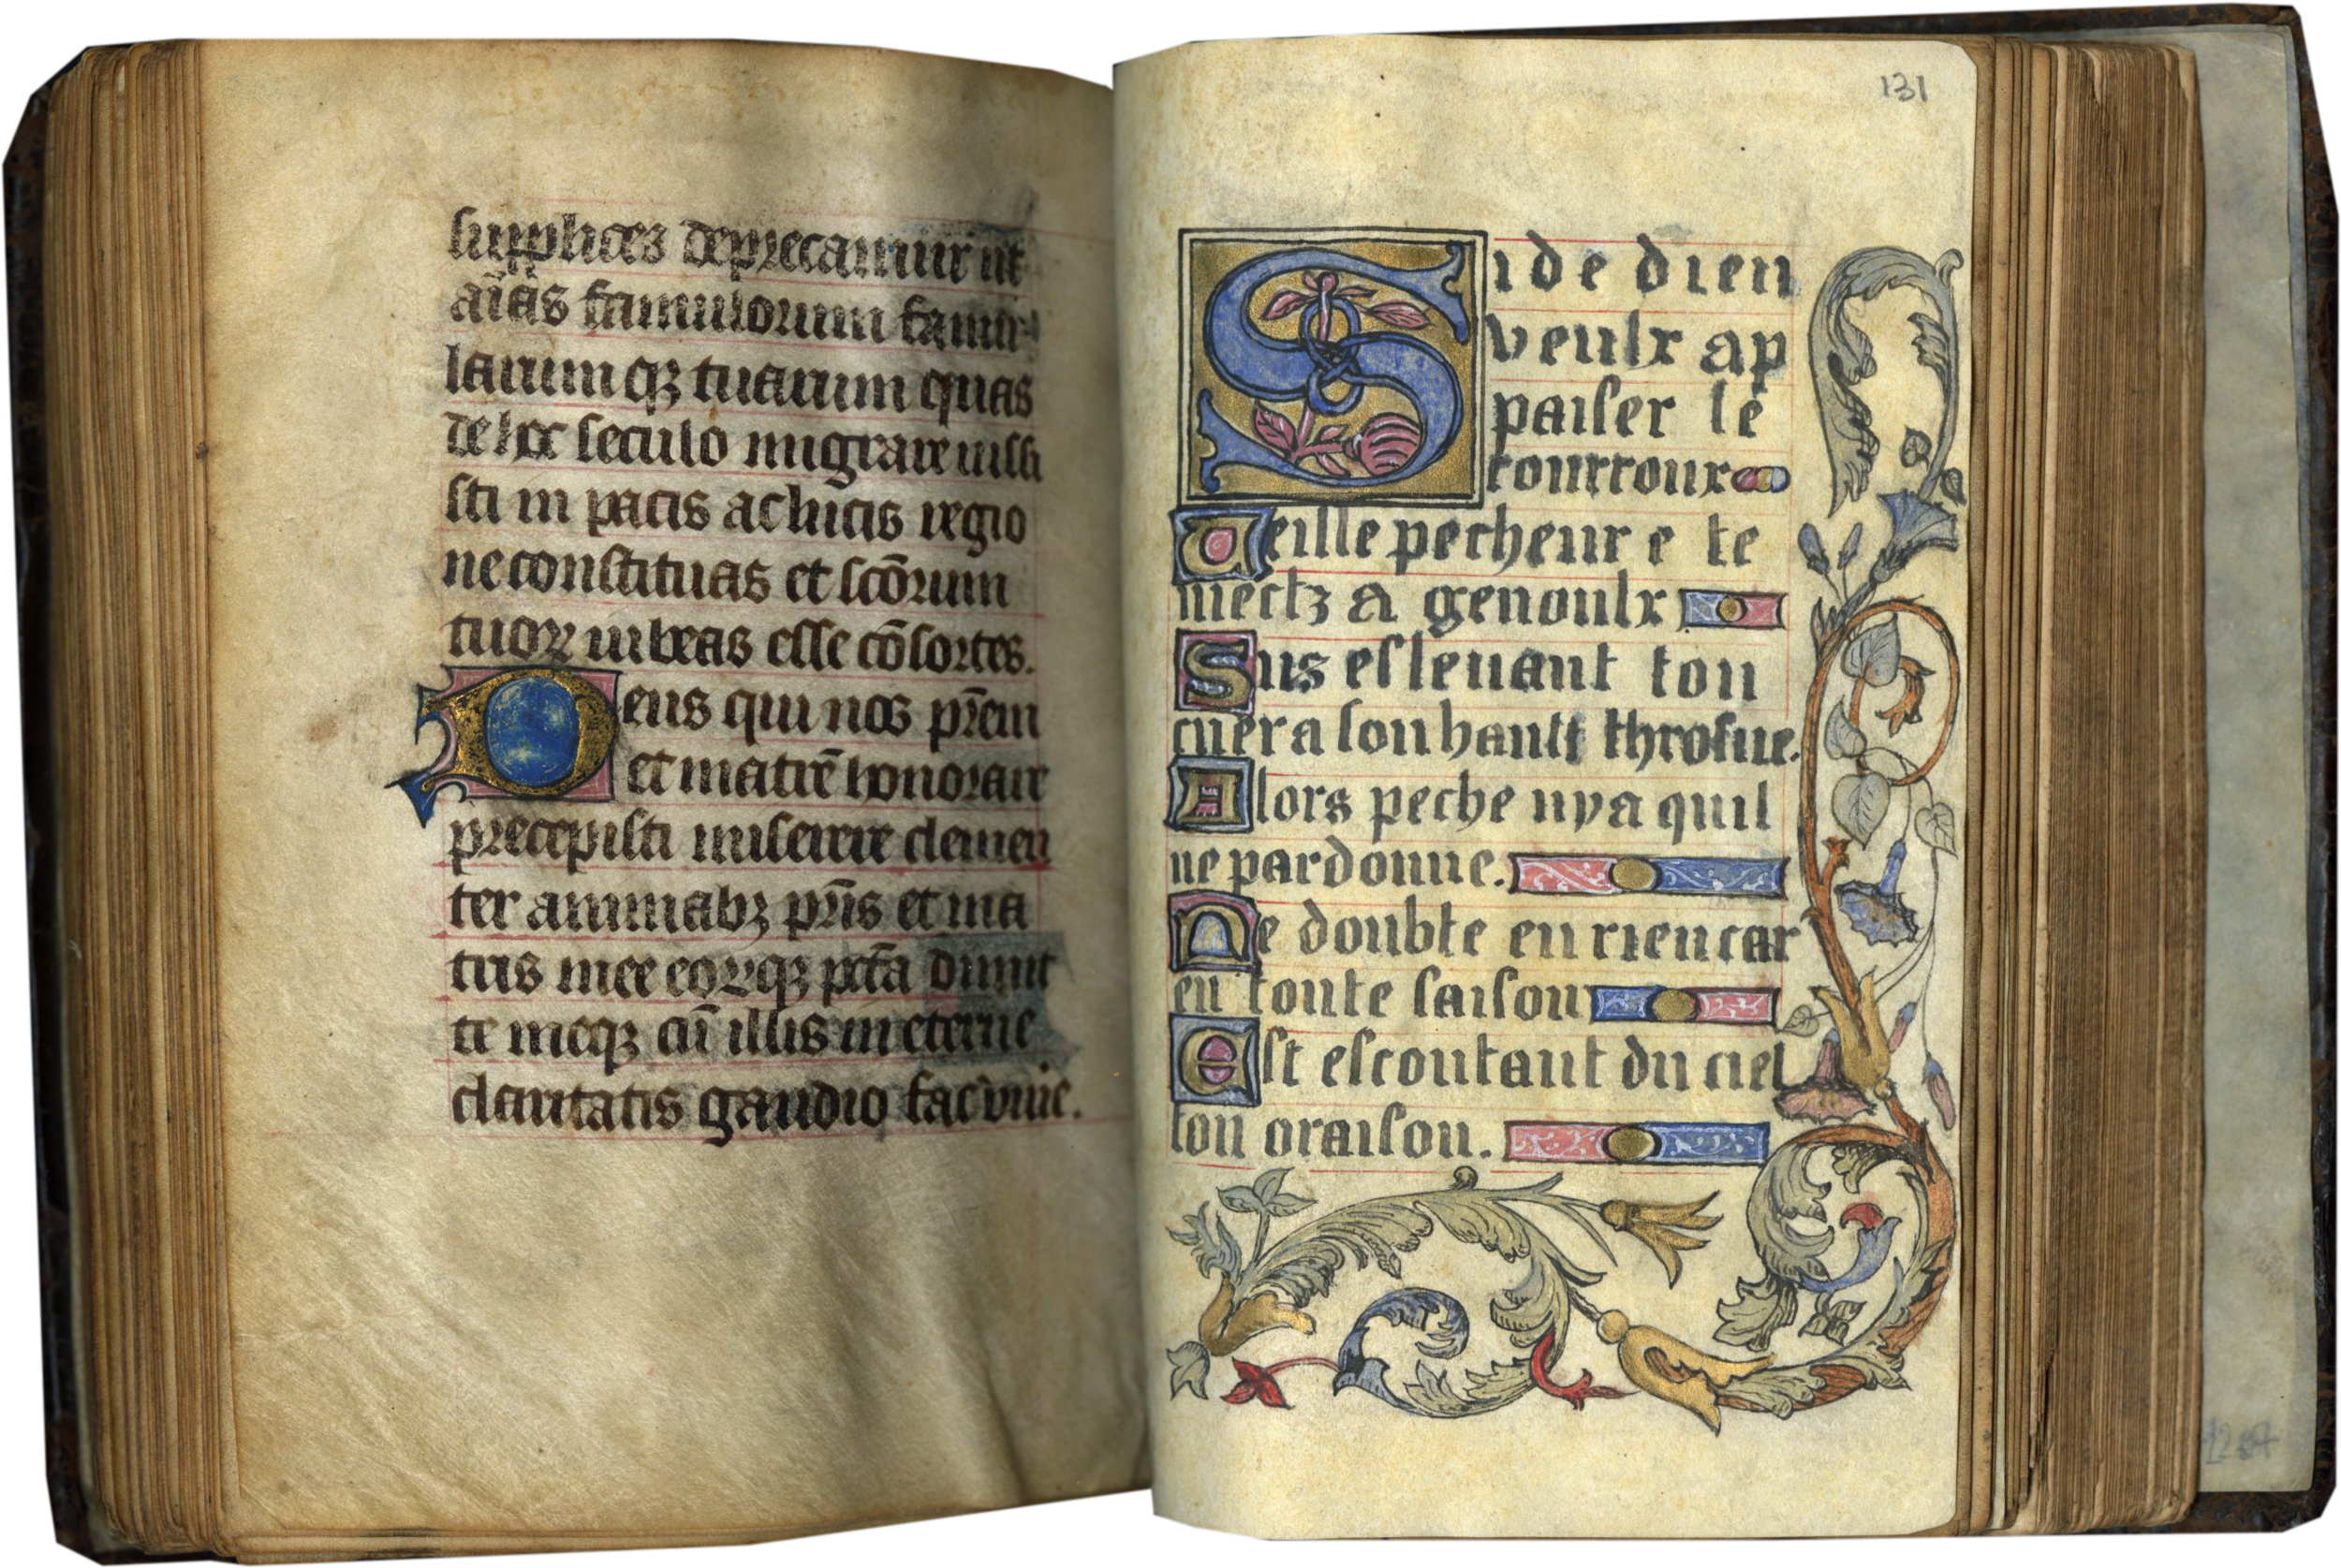 supplices deprecamur ut
aīas famulorum famu-
larumqꝫ tuarum quas
de hoc seculo migrare iussi
sti in pacis ac lucis regio
ne constituas et scōrum
tuoꝝ iubeas esse cōsortes.
Deus qui nos pr̄em
et matrē honorare
precepisti miserere clemen
ter animabꝫ pr̄is et ma
tris mee eoꝝqꝫ pctā dimit
te meqꝫ cū illis in eterne
claritatis gaudio fac viuē.
131
Si de dieu
veulx ap
paiser le
courroux
Veille pecheur e te
mectz a genoulx
Sus esleuant ton
cuer a son hault throsne.
Alors peche nya quil
ne pardonne.
Ne doubte en rien car
en toute saison
Est escoutant du ciel
ton oraison.